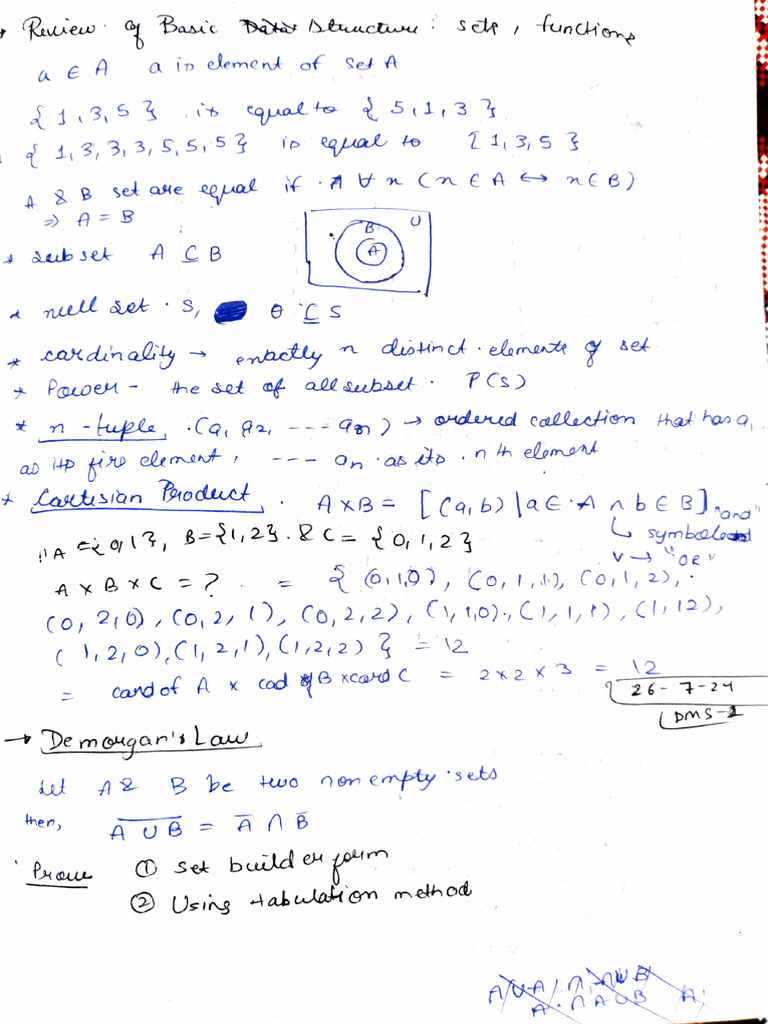 → Review of Basic Data Structure: sets, functions
a ∈ A a is element of set A
{1, 3, 5} is equal to {5, 1, 3}
{1, 3, 3, 3, 5, 5, 5} is equal to {1, 3, 5}
A & B set are equal if ∀ x (x ∈ A ↔ x ∈ B)
⇒ A = B
U
B
A
* subset A ⊆ B
* null set . S, θ ⊆ S
* cardinality → exactly n distinct elements of set
* Power - the set of all subset. P(S)
* n-tuple, (a, a2, --- an) → ordered collection that has a,
as its first element, --- an as its nth element
* Cartisian Product . A×B = [(a, b) | a ∈ A ∩ b ∈ B] "and"
↳ symbol
V → "OR"
"A = {0, 1}, B = {1, 2} . & C = {0, 1, 2}
A × B × C = ? = {(0,1,0), (0,1,1), (0,1,2),
(0,2,0), (0,2,1), (0,2,2), (1,1,0), (1,1,1), (1,12),
(1,2,0), (1,2,1), (1,2,2)} = 12
= card of A × cad of B × card C = 2×2×3 = 12
26-7-24
DMS-1
→ Demorgan's Law
Let A & B be two non empty sets
then, \overline{A ∪ B} = \overline{A} ∩ \overline{B}
Prove ① Set builder form
② Using tabulation method